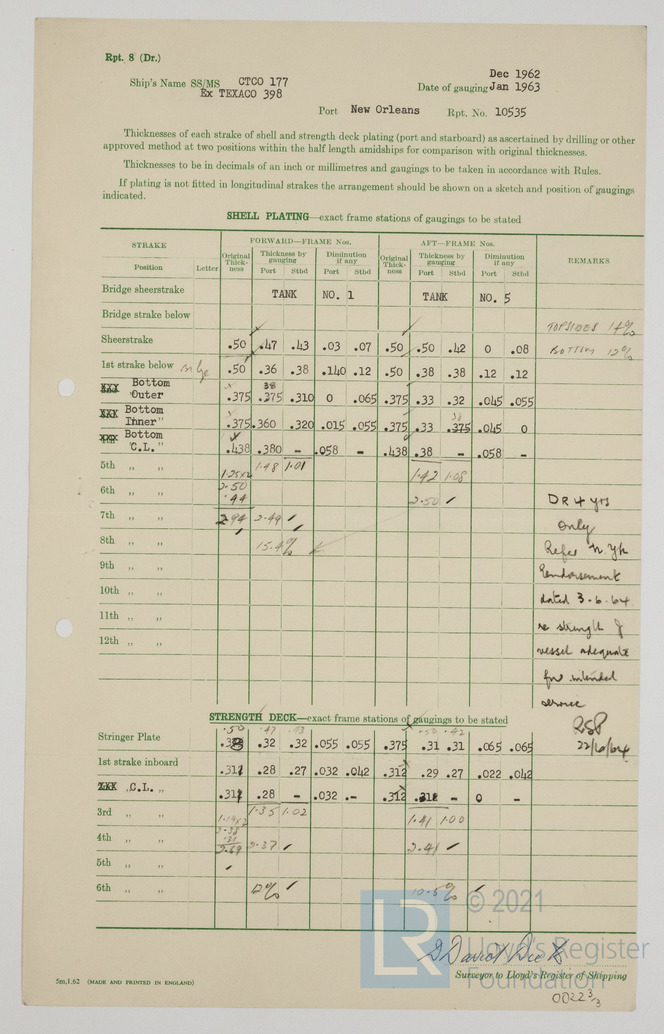 Rpt. 8 (Dr.)
Dec 1962
Ship's Name SS/MS CTCO 177 Date of gauging Jan 1963
Ex TEXACO 398
Port New Orleans Rpt. No. 10535
Thicknesses of each strake of shell and strength deck plating (port and starboard) as ascertained by drilling or other
approved method at two positions within the half length amidships for comparison with original thicknesses.
Thicknesses to be in decimals of an inch or millimetres and gaugings to be taken in accordance with Rules.
If plating is not fitted in longitudinal strakes the arrangement should be shown on a sketch and position of gaugings
indicated.
SHELL PLATING—exact frame stations of gaugings to be stated
STRAKE FORWARD—FRAME Nos. AFT—FRAME Nos. REMARKS
Original Thick-ness Thickness by gauging Diminution if any Original Thick-ness Thickness by gauging Diminution if any
Position Letter Port Stbd Port Stbd Port Stbd Port Stbd
Bridge sheerstrake TANK NO. 1 TANK NO. 5
Bridge strake below
TOPSIDES 14%
Sheerstrake .50 .47 .43 .03 .07 .50 .50 .42 0 .08
BOTTOM 12%
1st strake below .50 .36 .38 .140 .12 .50 .38 .38 .12 .12
XXX Bottom 38
Outer .375 .375 .310 0 .065 .375 .33 .32 .045 .055
XXX Bottom 38
Inner " .375 .360 .320 .015 .055 .375 .33 .375 .045 0
XXX Bottom
C.L. " .438 .380 - .058 - .438 .38 - .058 -
5th ,, ,, 1.25x2 1.48 1.01 1.42 1.08
6th ,, ,, 2.50 .44 2.50 ✓
7th ,, ,, 2.94 2.49 ✓
8th ,, ,, 15.4%
9th ,, ,,
10th ,, ,,
11th ,, ,,
12th ,, ,,
DR 4 yrs
only
Refce N. Yk
Endorsement
dated 3-6-64
re strength of
vessel adequate
for intended
service
RSP
22/6/64
STRENGTH DECK—exact frame stations of gaugings to be stated
.50 .47 .43 .50 .42
Stringer Plate .32 .32 .055 .055 .375 .31 .31 .065 .065
1st strake inboard .312 .28 .27 .032 .042 .312 .29 .27 .022 .042
XXX ,,C.L. ,, .312 .28 - .032 .- .312 - 0 -
3rd ,, ,, 1.19x2 1.35 1.02 1.41 1.00
4th ,, ,, 2.38 .31 2.69 2.37 ✓ 2.41 ✓
5th ,, ,,
6th ,, ,, 12% ✓ 10.5% ✓
© 2021
LR Lloyd's Register
Foundation
Surveyor to Lloyd's Register of Shipping
5m,1.62 (MADE AND PRINTED IN ENGLAND)
00223/3